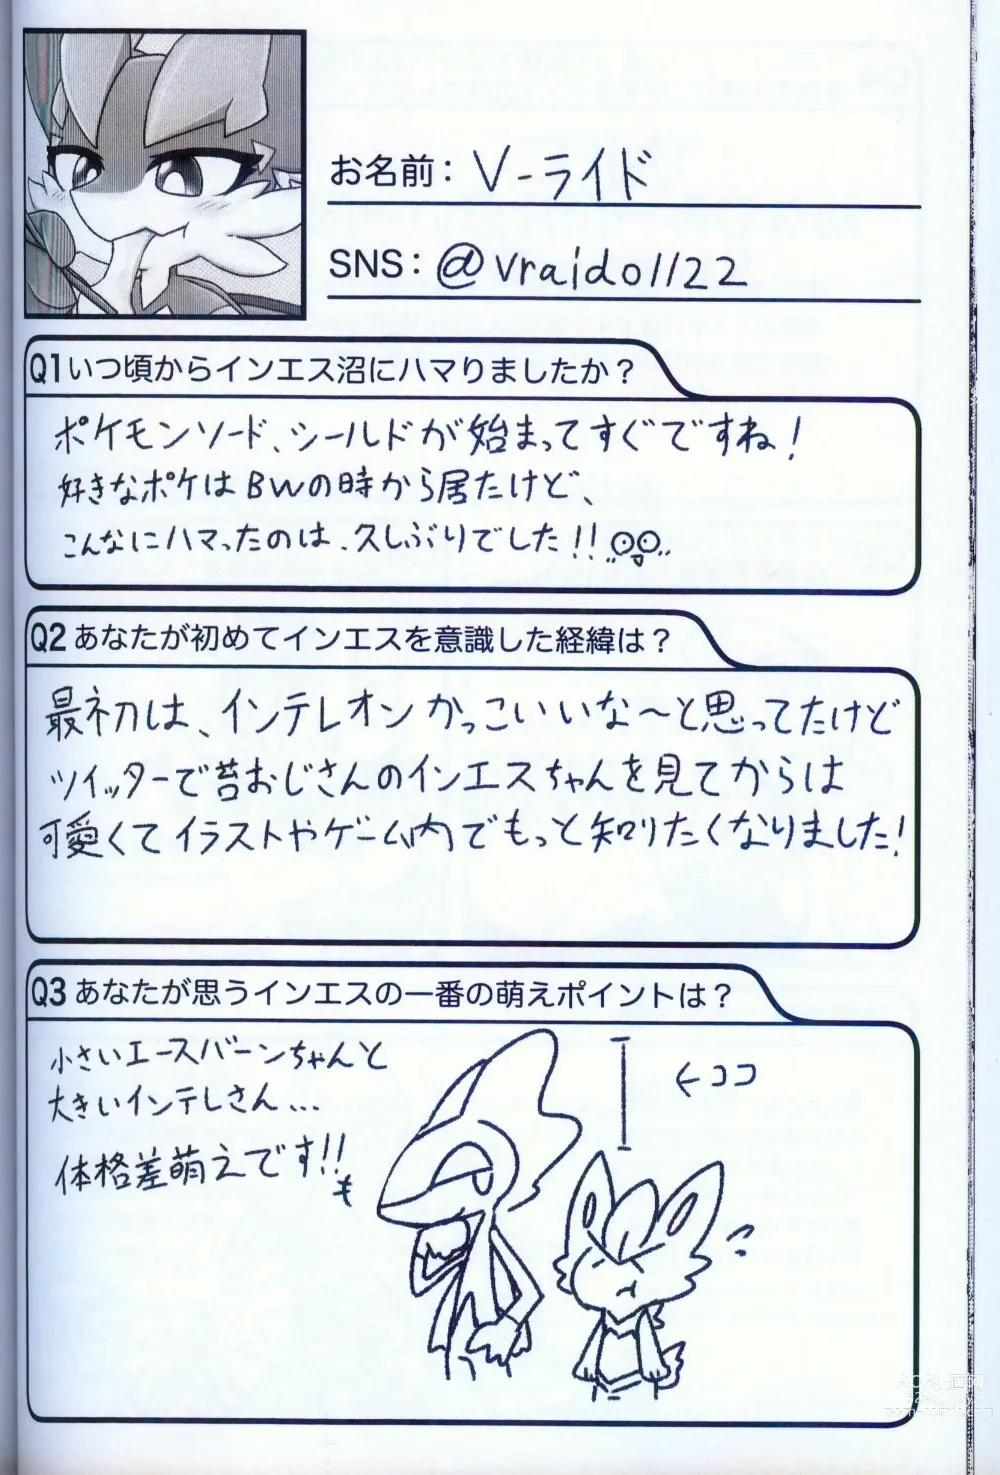 お名前：V-ライド
SNS：@vraido1122
Q1いつ頃からインエス沼にハマりましたか？
ポケモンソード、シールドが始まってすぐですね！
好きなポケはBWの時から居たけど、
こんなにハマったのは、久しぶりでした!!
Q2あなたが初めてインエスを意識した経緯は？
最初は、インテレオンかっこいいな〜と思ってたけど
ツイッターで苔おじさんのインエスちゃんを見てからは
可愛くてイラストやゲーム内でもっと知りたくなりました！
Q3あなたが思うインエスの一番の萌えポイントは？
小さいエースバーンちゃんと
大きいインテレさん...
体格差萌えです!!
←ココ